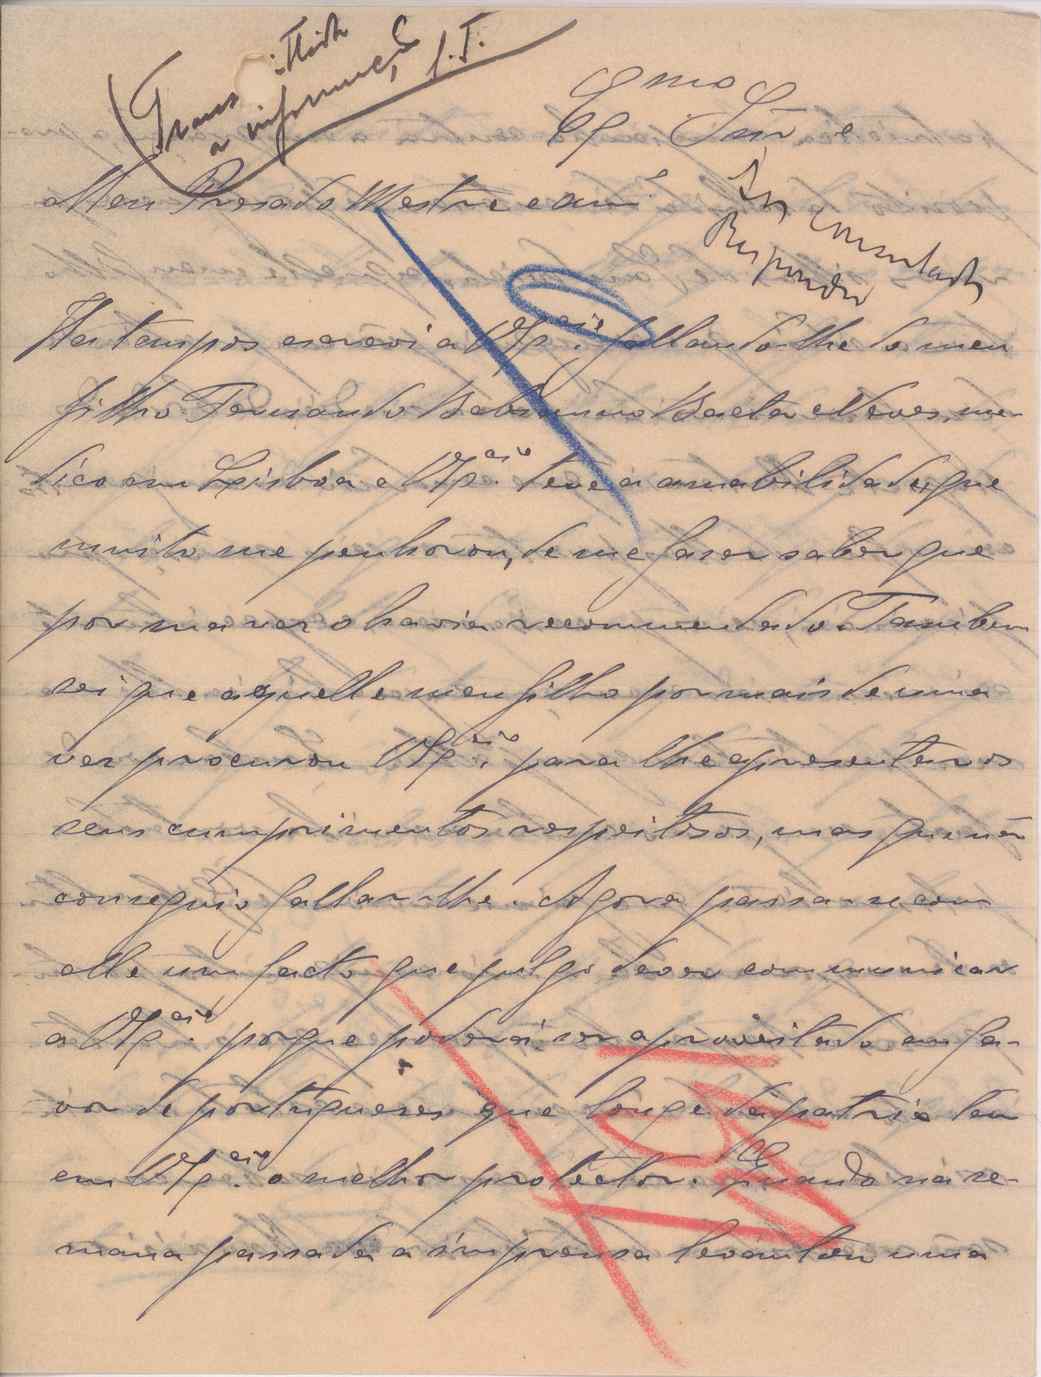 Transmittida
a informação
Exmo
Snr
Meu Presado Mestre e am.º
Responder
Ha tempos escrevi a V. Ex.cia fallando-lhe do meu
filho Fernando Baeta Neves, me-
dico em Lisboa e V. Ex.cia teve a amabilidade, que
muito me penhorou, de me fazer saber que
por sua vez o havia recommendado. Tambem
sei que aquelle meu filho por mais de uma
vez procurou V. Ex.cia para lhe apresentar os
seus cumprimentos respeitosos, mas que não
conseguio fallar-lhe. Agora passa-se com
elle um facto que julgo dever communicar
a V. Ex.cia porque poderá ser aproveitado em fa-
vor de portugueses que longe da patria tem
em V. Ex.cia o melhor protector. Quando na se-
mana passada a imprensa levantou uma